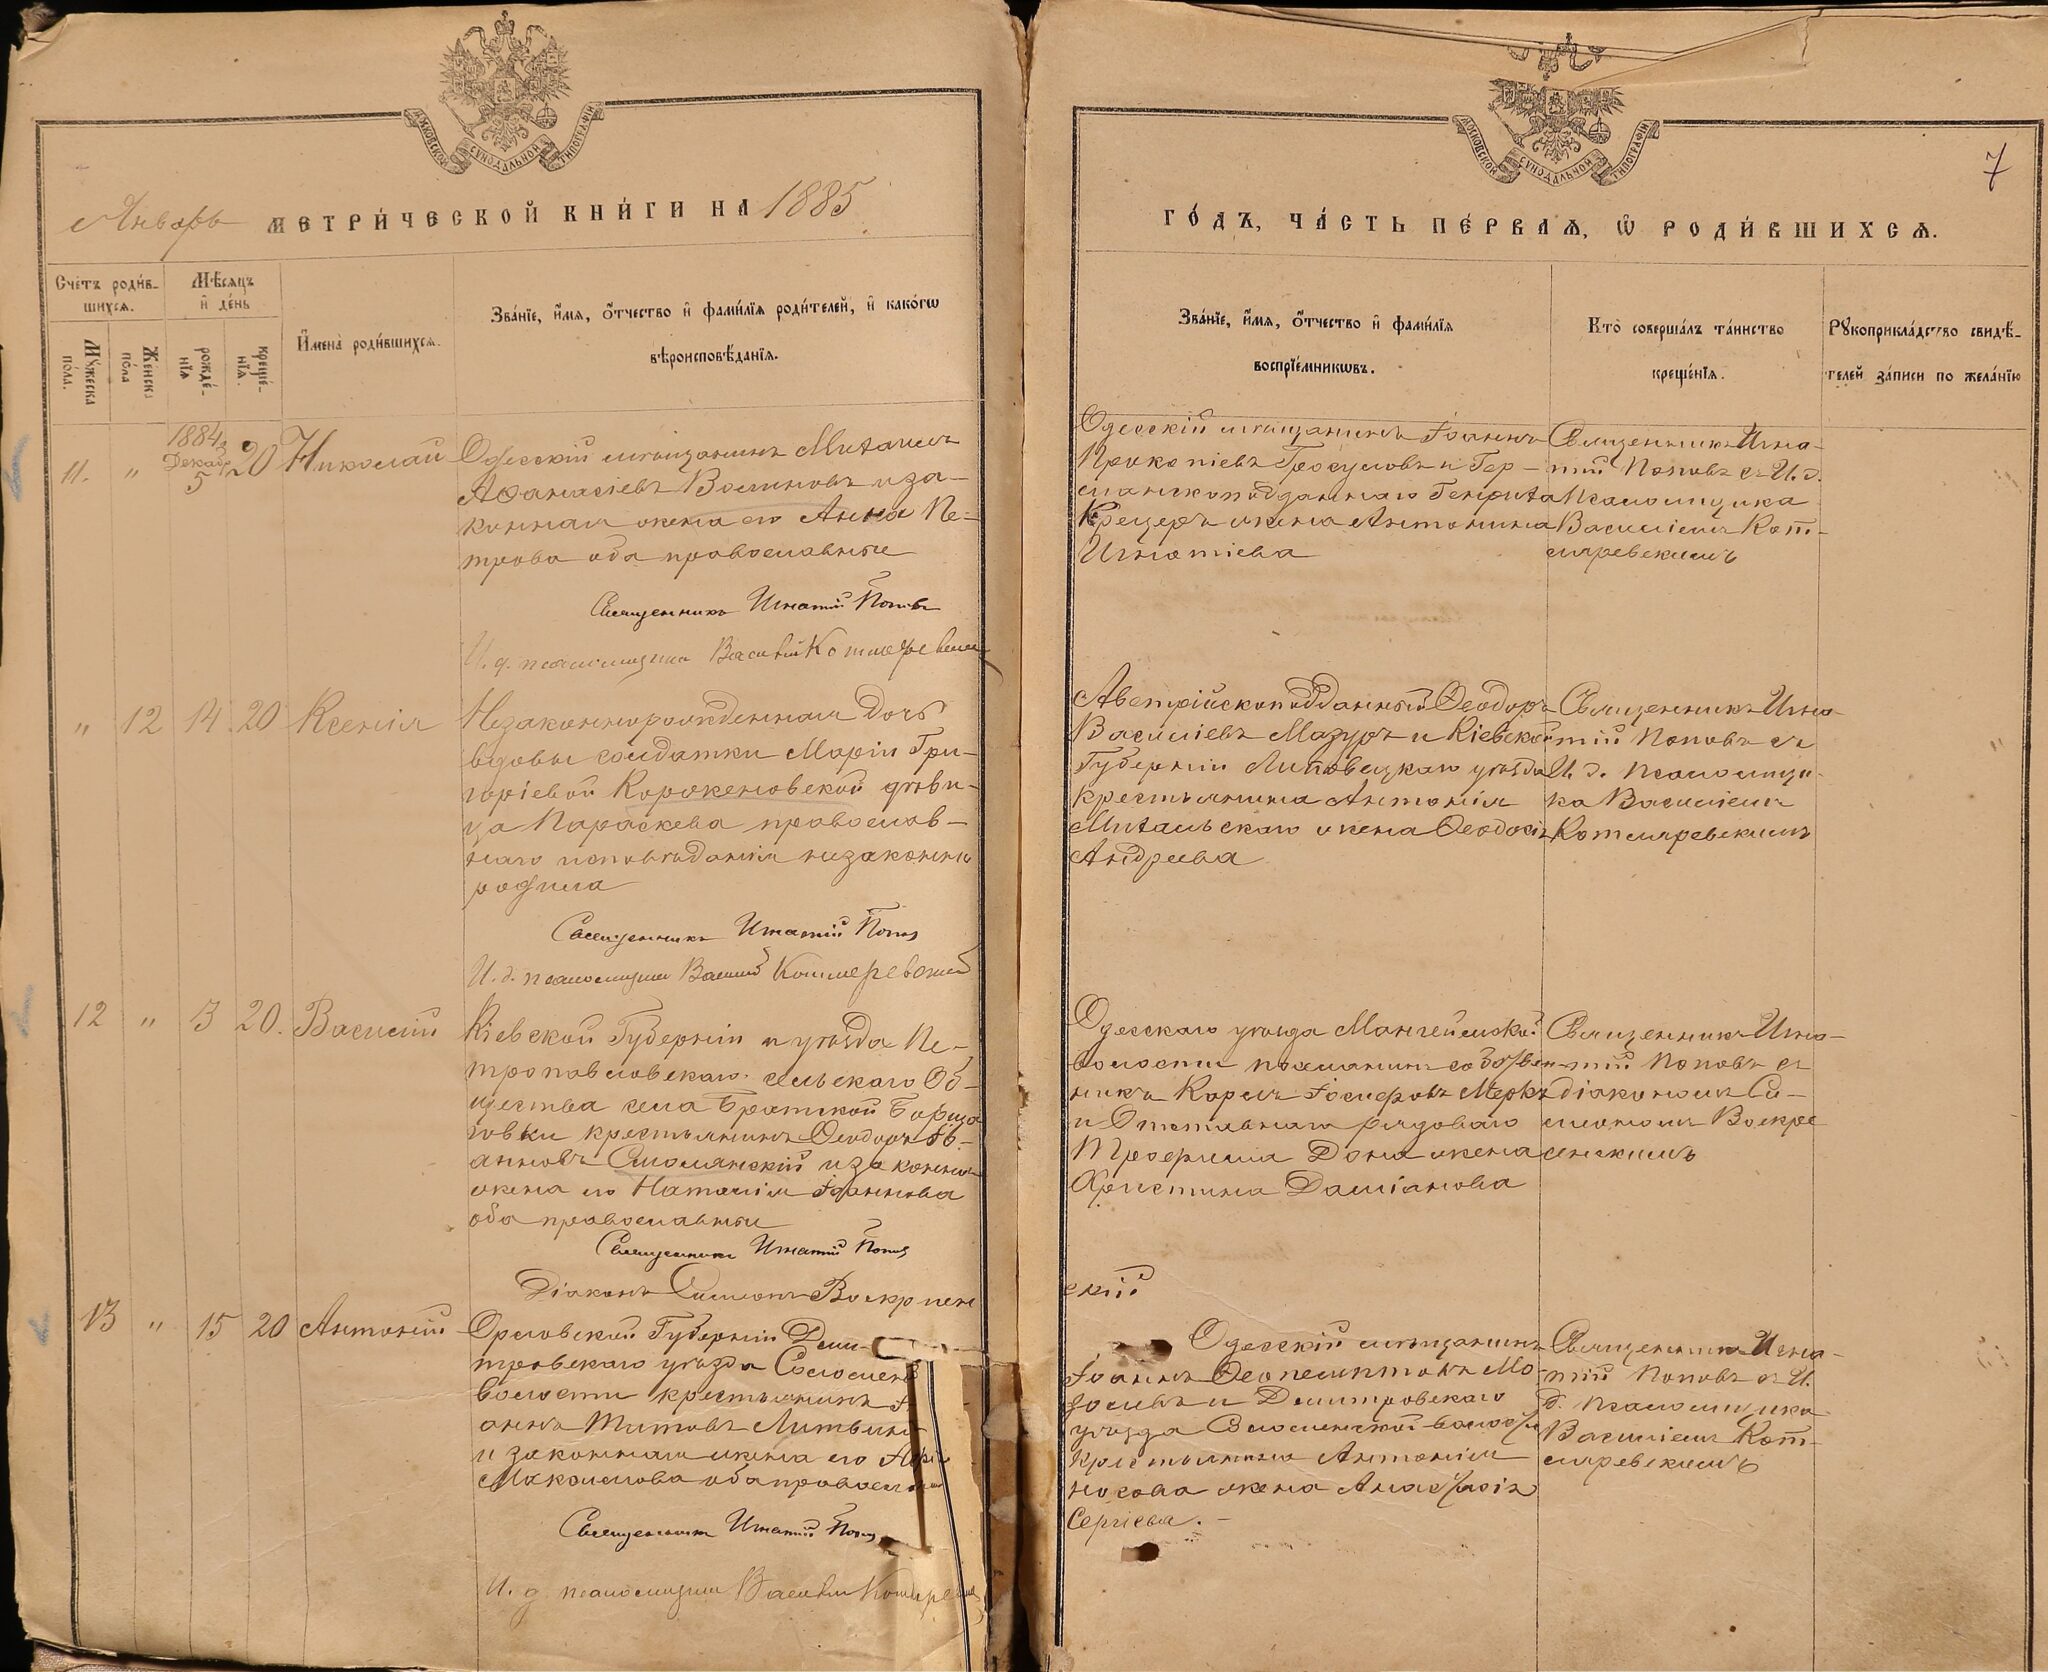 МОСКОВСКОЙ СУНОДАЛЬНОЙ ТИПОГРАФІИ
Январь МЕТРИ́ЧЕСКОЙ КНИ́ГИ НА 1885
Сче́тъ роди́в-
шихсѧ.
Мѣ́сѧцъ
и҆ де́нь
Мꙋ́жеска по́ла.
Же́нска по́ла
рожде́-нїѧ
креще́-нїѧ.
И҆мена̀ роди́вшихсѧ.
Зва́нїе, и҆́мѧ, ѻ҆́тчество и҆ фами́лїѧ роди́телей, и҆ како́гѡ
вѣроисповѣ́данїѧ.
11. " 1884 Декабр 5 20 Николай
Одесскій мѣщанинъ Михаилъ
Аѳанасіевъ Волиновъ и за-
конная жена его Анна Пе-
трова оба православные
Священникъ Игнатій Поповъ
И. д. псаломщика Василій Котляревскій
" 12 14. 20 Ксенія
Незаконнорожденная дочь
вдовы солдатки Маріи Гри-
горіевой Корженовской дѣви-
ца Параскева православ-
наго исповѣданія незаконно
родила
Священникъ Игнатій Поповъ
И. д. псаломщика Василій Котляревскій
12 " 3 20. Василій
Кіевской Губерніи и уѣзда Пе-
тропавловскаго сельскаго Об-
щества села Братской Борщо
говки крестьянинъ Ѳеодоръ Іо-
анновъ Смолянскій и законная
жена его Наталія Іоаннова
оба православные
Священникъ Игнатій Поповъ
Діаконъ Симеонъ Воскресен
13 " 15 20 Антоній
Орловской Губерніи Дми-
тровскаго уѣзда Соломен
волости крестьянинъ І-
аннъ Титовъ Литвин
и законная жена его
Максимова оба православ
Священникъ Игнатій Поповъ
И. д. псаломщика Василій Котляревскій
МОСКОВСКОЙ СУНОДАЛЬНОЙ ТИПОГРАФІИ
7
ГО́ДЪ, ЧА́СТЬ ПЕ́РВАѦ, Ѡ҆ РОДИ́ВШИХСѦ.
Зва́нїе, и҆́мѧ, ѻ҆́тчество и҆ фами́лїѧ
воспрїе́мникѡвъ.
Кто̀ соверша́лъ та́инство
креще́нїѧ.
Рꙋкоприкла́дство свидѣ́-
телей за́писи по жела́нїю
Одесскій мѣщанинъ Іоаннъ
Прокопіевъ Гросуловъ и Гер-
манскоподданнаго Генриха
Крецеръ жена Антонина
Игнатіева
Священникъ Игна-
тій Поповъ съ И. д.
Псаломщика
Василіемъ Кот-
ляревскимъ
Австрійскоподданный Ѳеодоръ
Василіевъ Мазуръ и Кіевской
Губерніи Липовецкаго уѣзда
крестьянина Антонія
Михальскаго жена Ѳеодосія
Андреева
Священникъ Игна-
тій Поповъ съ
И. д. Псаломщи-
ка Василіемъ
Котляревскимъ
Одесскаго уѣзда Мангеймской
волости поселянинъ собствен-
никъ Карлъ Іосифовъ Меркъ
и Отставнаго рядоваго
Трофима Дона жена
Христина Даміанова
Священникъ Игна-
тій Поповъ съ
діакономъ Си-
меономъ Воскре
сенскимъ
скій
Одесскій мѣщанинъ
Іоаннъ Ѳеопемптовъ Мо-
золевъ и Дмитровскаго
уѣзда Соломенской волости
крестьянина Антонія
носова жена Анастасія
Сергіева. -
Священникъ Игна-
тій Поповъ съ И.
д. Псаломщика
Василіемъ Кот-
ляревскимъ